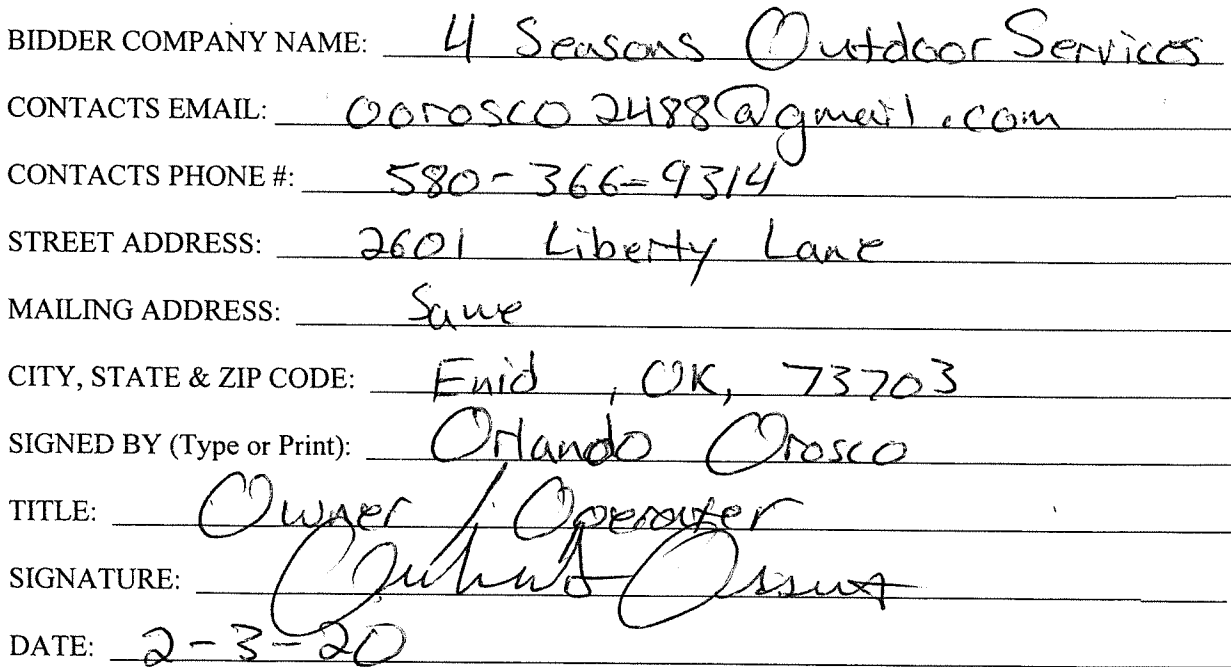 BIDDER COMPANY NAME: 4 Seasons Outdoor Services
CONTACTS EMAIL: oorosco2488@gmail.com
CONTACTS PHONE #: 580-366-9314
STREET ADDRESS: 2601 Liberty Lane
MAILING ADDRESS: Same
CITY, STATE & ZIP CODE: Enid, OK, 73703
SIGNED BY (Type or Print): Orlando Orosco
TITLE: Owner / Operater
SIGNATURE:
DATE: 2-3-20